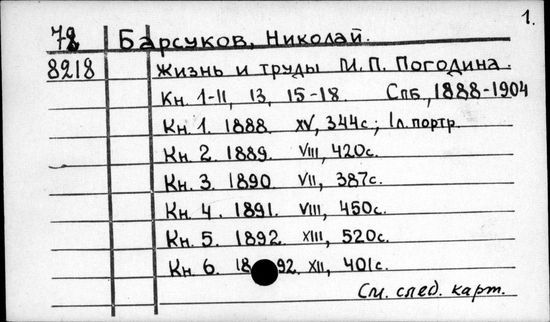 1.
78 Барсуков, Николай.
8218 Жизнь и труды М.П. Погодина.
Кн. 1-11, 13, 15-18. Спб., 1888-1904
Кн. 1. 1888. XV, 344с.; 1л.портр.
Кн. 2. 1889. VIII, 420с.
Кн. 3. 1890. VII, 387с.
Кн. 4. 1891. VIII, 450с.
Кн. 5. 1892. XIII, 520с.
Кн. 6. 1892. XII, 401с.
См. след. карт.